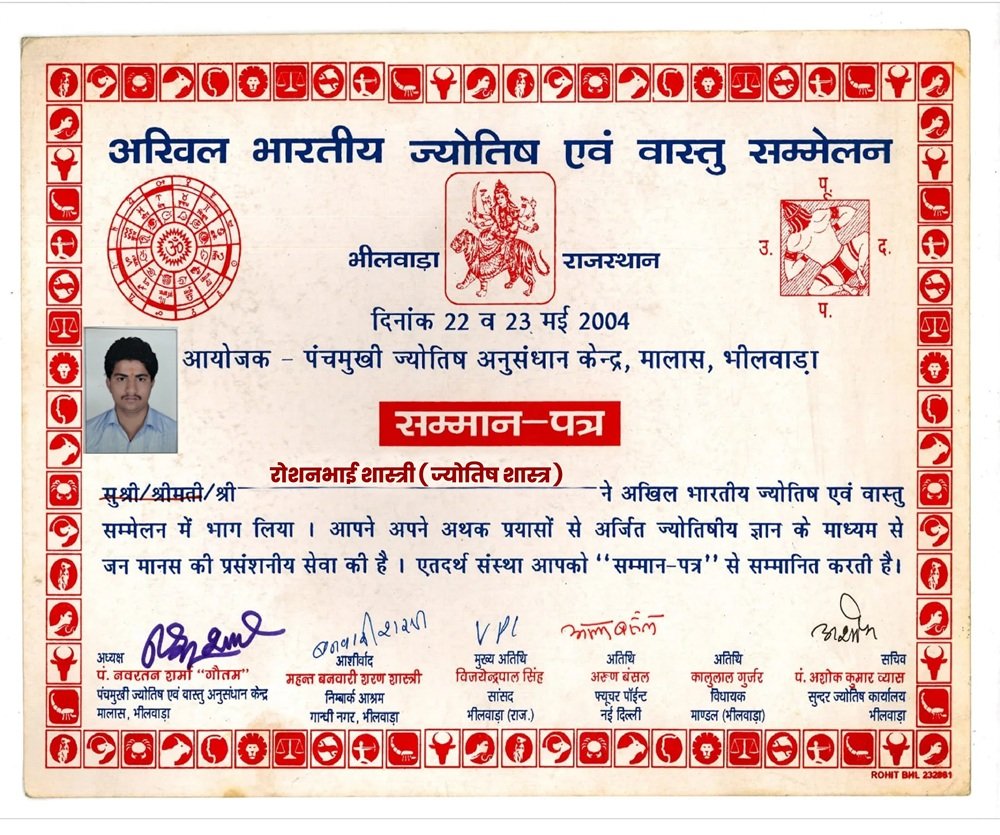 अखिल भारतीय ज्योतिष एवं वास्तु सम्मेलन
पू.
उ. द.
प.
भीलवाड़ा राजस्थान
दिनांक 22 व 23 मई 2004
आयोजक - पंचमुखी ज्योतिष अनुसंधान केन्द्र, मालास, भीलवाड़ा
सम्मान-पत्र
रोशनभाई शास्त्री ( ज्योतिष शास्त्र )
सुश्री/श्रीमती/श्री ने अखिल भारतीय ज्योतिष एवं वास्तु
सम्मेलन में भाग लिया । आपने अपने अथक प्रयासों से अर्जित ज्योतिषीय ज्ञान के माध्यम से
जन मानस की प्रसंशनीय सेवा की है । एतदर्थ संस्था आपको “सम्मान-पत्र” से सम्मानित करती है।
अध्यक्ष
पं. नवरतन शर्मा “गौतम”
पंचमुखी ज्योतिष एवं वास्तु अनुसंधान केन्द्र
मालास, भीलवाड़ा
बनवारी शरण
आशीर्वाद
महन्त बनवारी शरण शास्त्री
निम्बार्क आश्रम
गान्धी नगर, भीलवाड़ा
VPS
मुख्य अतिथि
विजयेन्द्रपाल सिंह
सांसद
भीलवाड़ा (राज.)
अरुण बंसल
अतिथि
अरूण बंसल
फ्यूचर पॉईन्ट
नई दिल्ली
अतिथि
कालुलाल गुर्जर
विधायक
माण्डल (भीलवाड़ा)
अशोक
सचिव
पं. अशोक कुमार व्यास
सुन्दर ज्योतिष कार्यालय
भीलवाड़ा
ROHIT BHL 232861